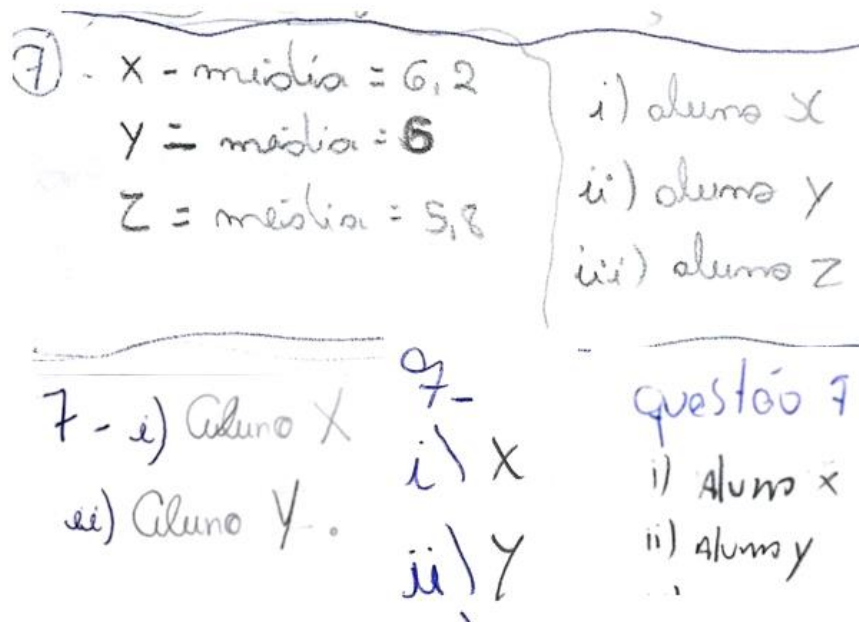 7. X - média = 6,2
Y = média = 6
Z = média = 5,8
i) aluno X
ii) aluno Y
iii) aluno Z
7 - i) Aluno X
ii) Aluno Y.
7-
i) X
ii) Y
questão 7
i) Aluno x
ii) Aluno y